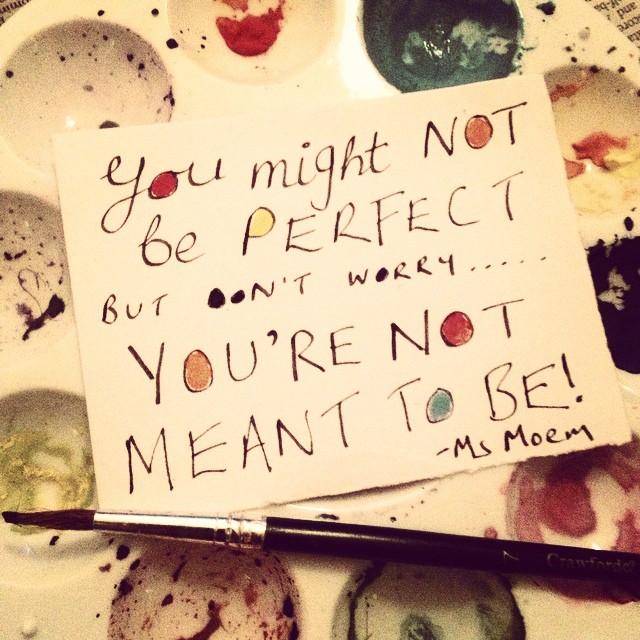 You might NOT
be PERFECT
BUT DON'T WORRY......
YOU'RE NOT
MEANT TO BE!
-Ms Moem